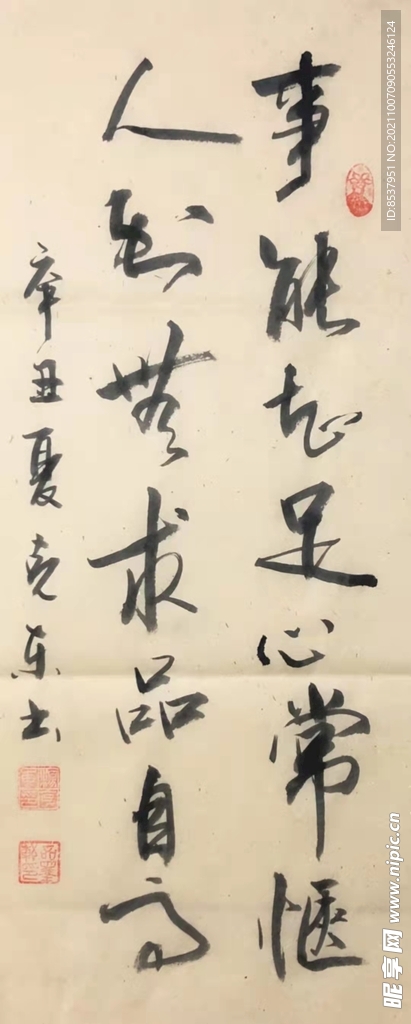 事能知足心常惬
人到无求品自高
辛丑夏克东书
ID:8537951 NO:20211007090553246124
昵享网 www.nipic.cn